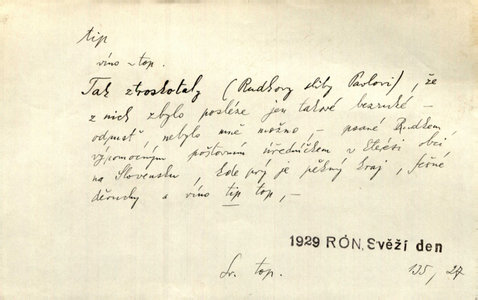 tip
víno – top.
Tak ztroskotaly (Rudkovy sliby Pavlovi), že
z nich zbylo posléze jen takové bezruké –
odpusť, nebylo mně možno, – psané Rudkem,
výpomocným poštovním úředníčkem v které si obci
na Slovensku, kde prý je pěkný kraj, fešné
děvuchy a víno tip top, –
1929 RÓN, Svěží den
Sv. top.
135, 27